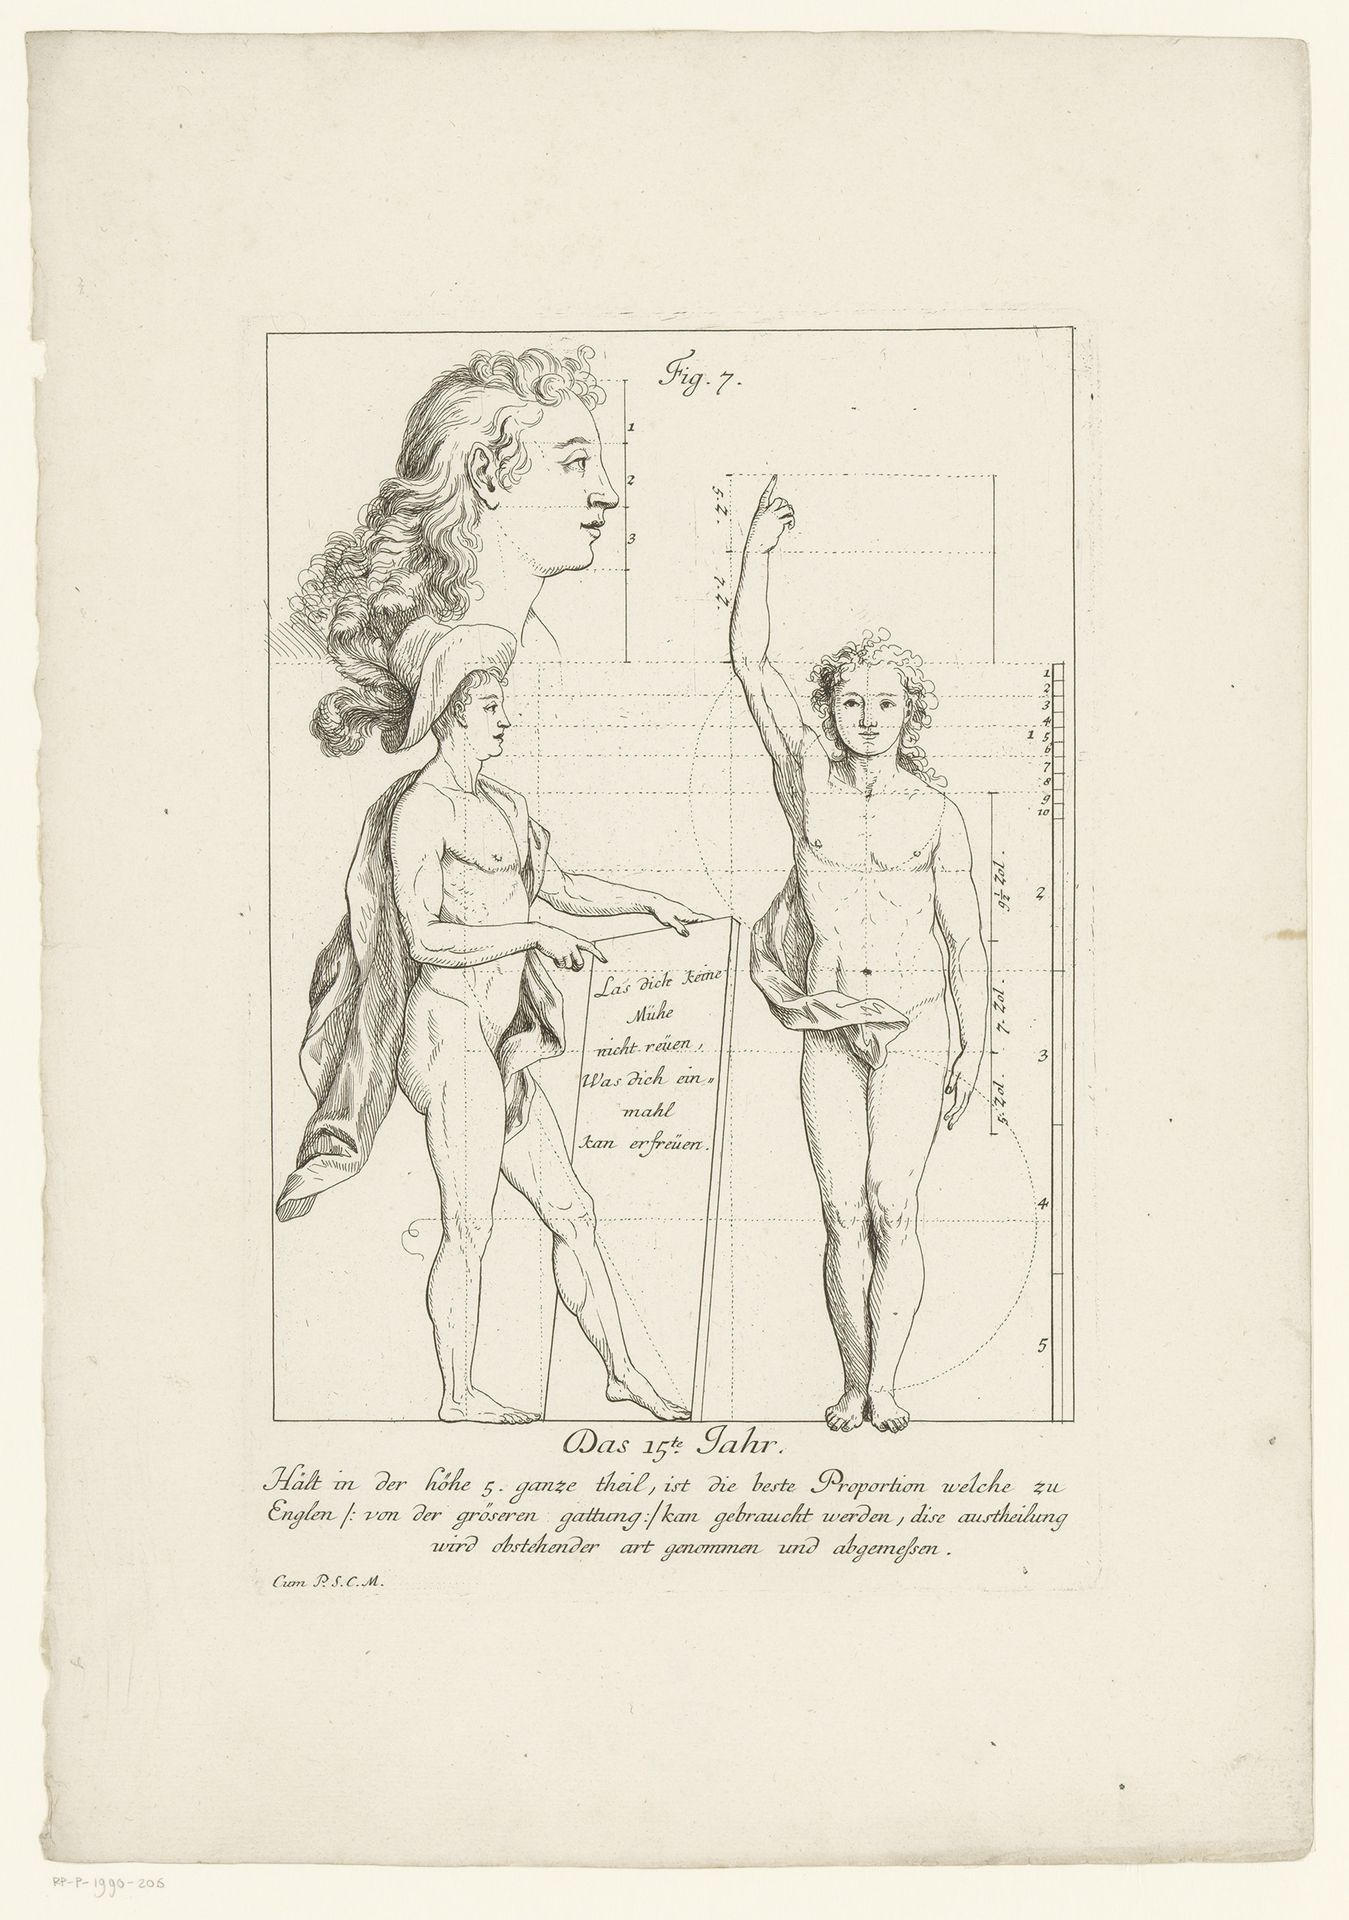 Fig. 7.
1
2
3
5. Z.
7. Z.
1
2
3
4
5
6
7
8
9
10
1
2
3
4
5
9½ Zol.
7. Zol.
5. Zol.
Las dich keine
Mühe
nicht reüen,
Was dich ein„
mahl
kan erfreüen.
Das 15te Jahr.
Hält in der höhe 5. ganze theil, ist die beste Proportion welche zu
Englen /: von der gröseren gattung :/ kan gebraucht werden, dise austheilung
wird obstehender art genommen und abgemeſsen.
Cum P. S. C. M.
RP-P-1990-206